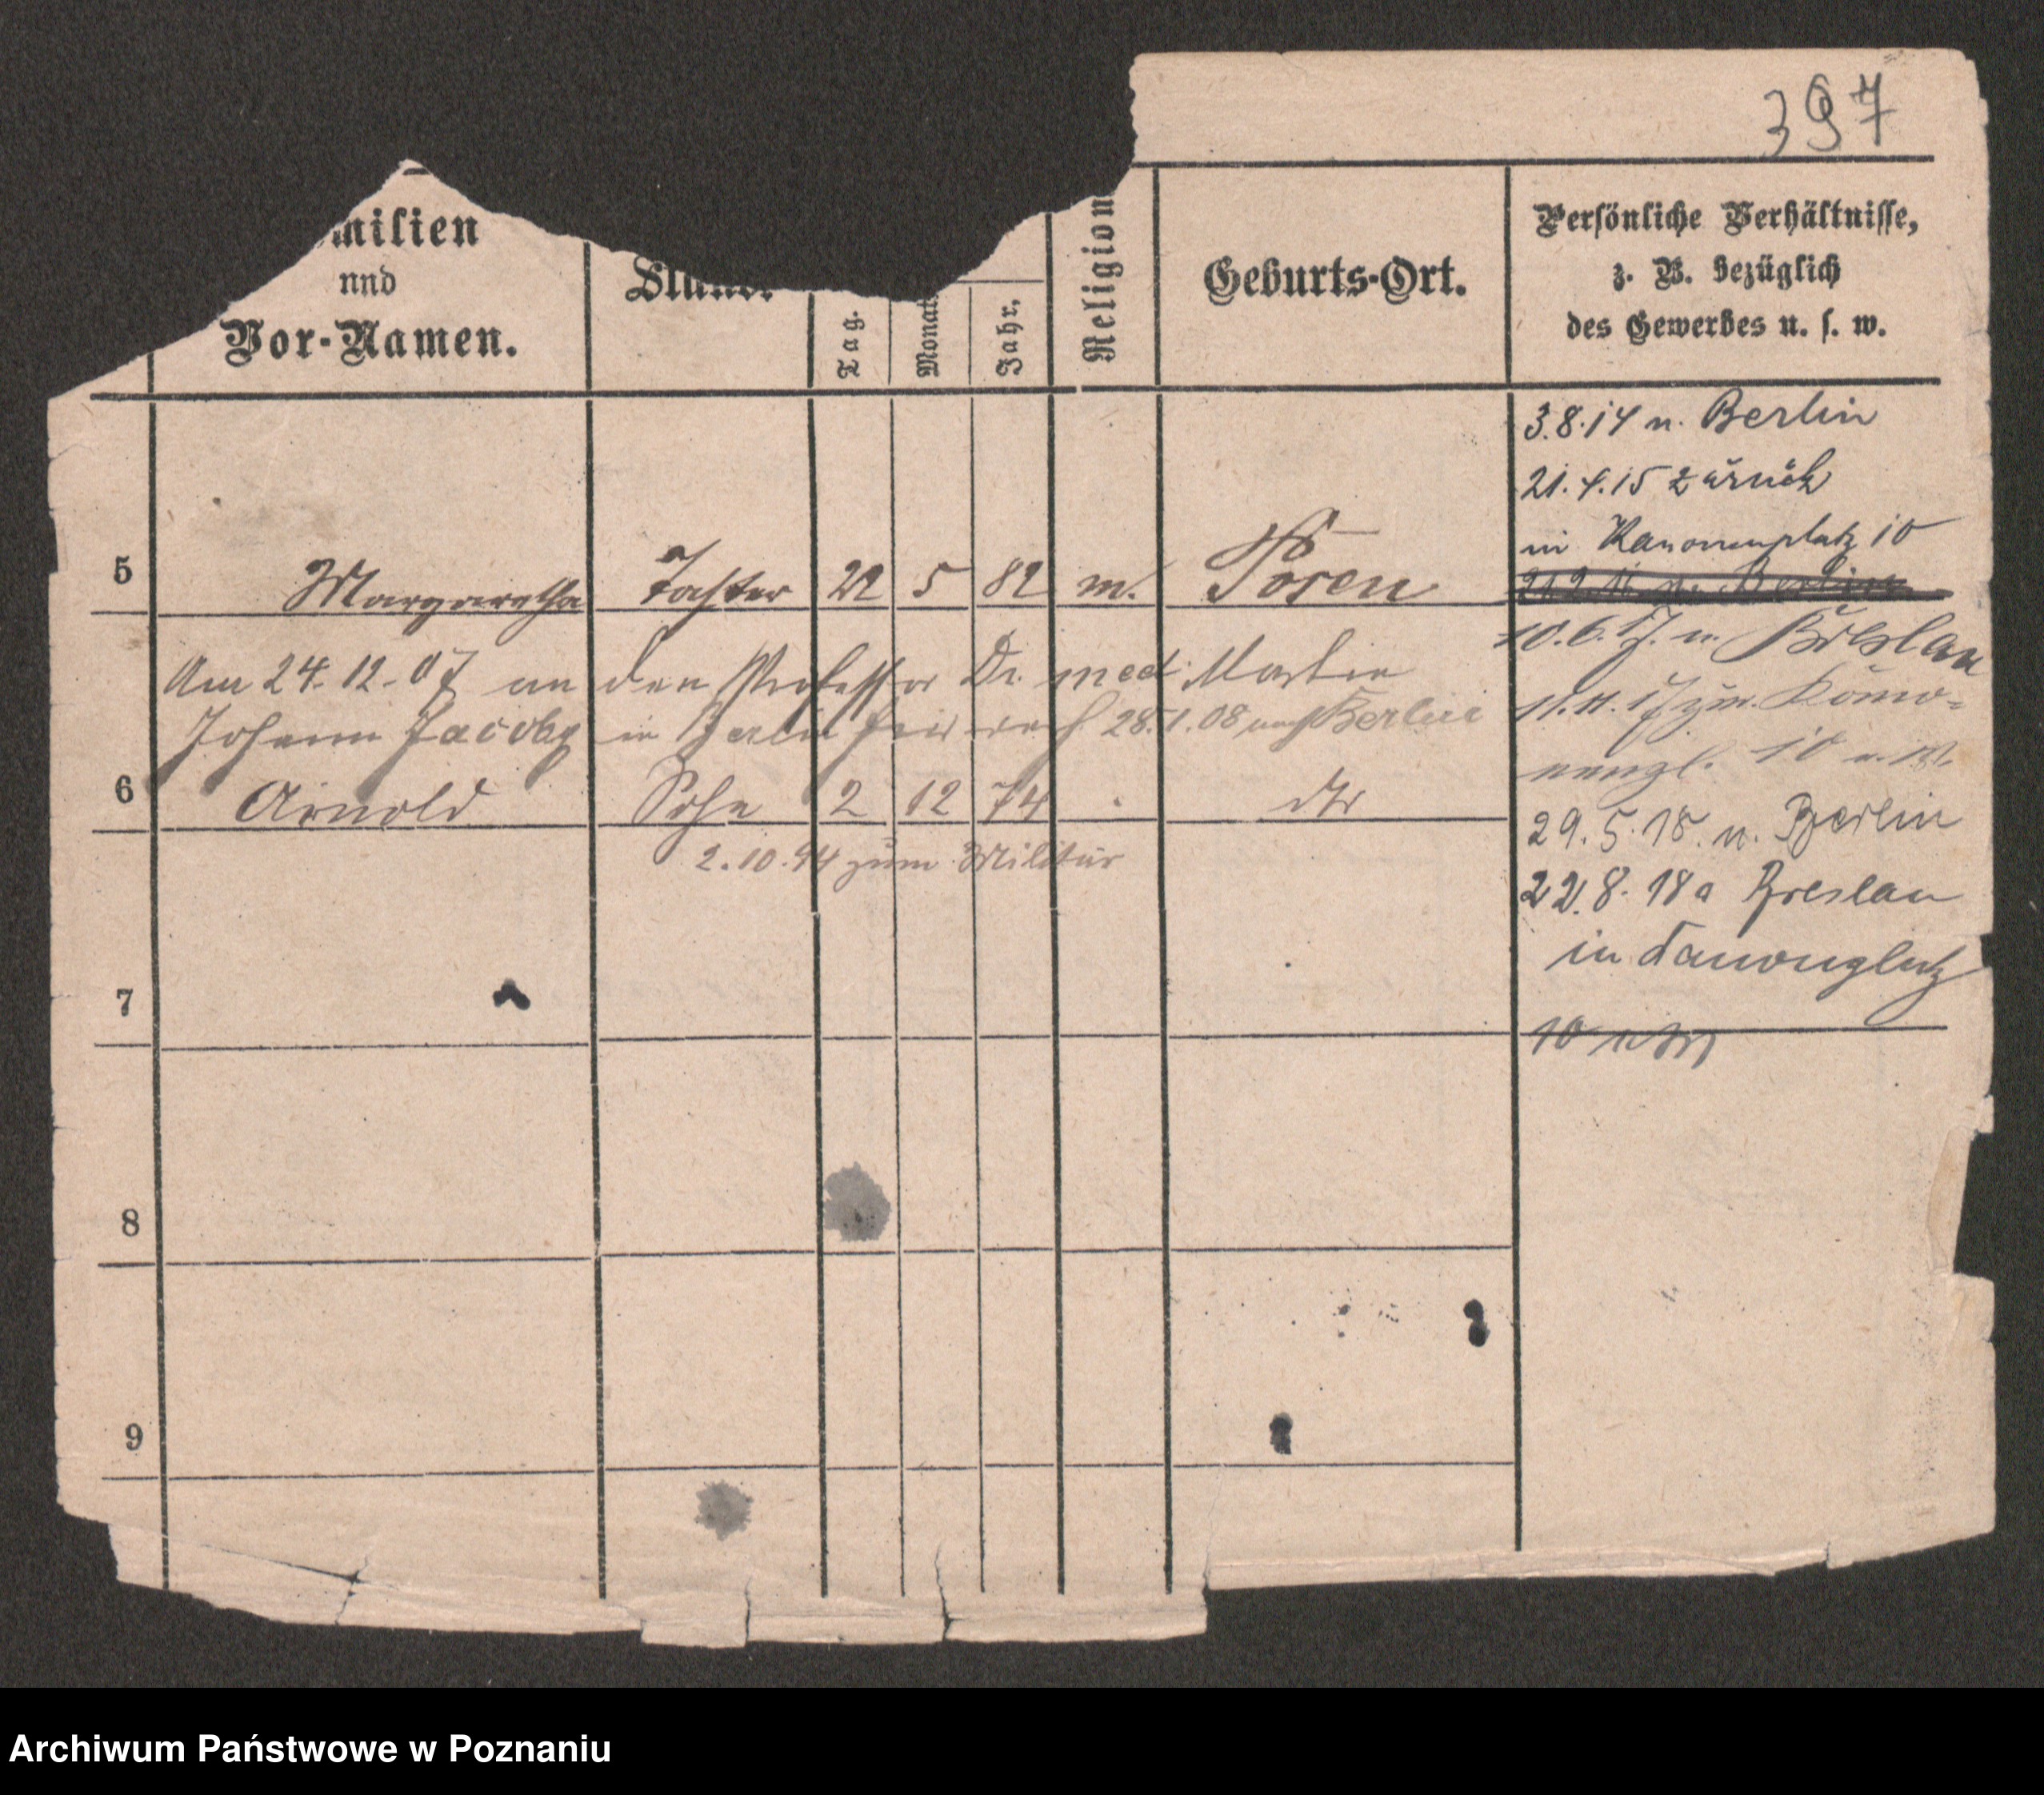 397
milien
und
Vor-Namen.
Stand.
Tag.
Monat.
Jahr.
Religion
Geburts-Ort.
Persönliche Verhältnisse,
z. B. bezüglich
des Gewerbes u. s. w.
3.8.14 n. Berlin
21.4.15 zurück
in Kanonenplatz 10
5 Margarethe Tochter 22 5 82 m. Posen
10.6.17. n. Breslau
Am 24.12.07 an den Professor Dr. med. Martin
Johann Jacoby in Berlin 28.1.08 nach Berlin
11.11.17
10
6 Arnold Sohn 2 12 74 dto
29.5.18. n. Berlin
2.10.94 zum Militär
22.8.18 a Breslau
in Kanonenplatz
7
10
8
9
Archiwum Państwowe w Poznaniu